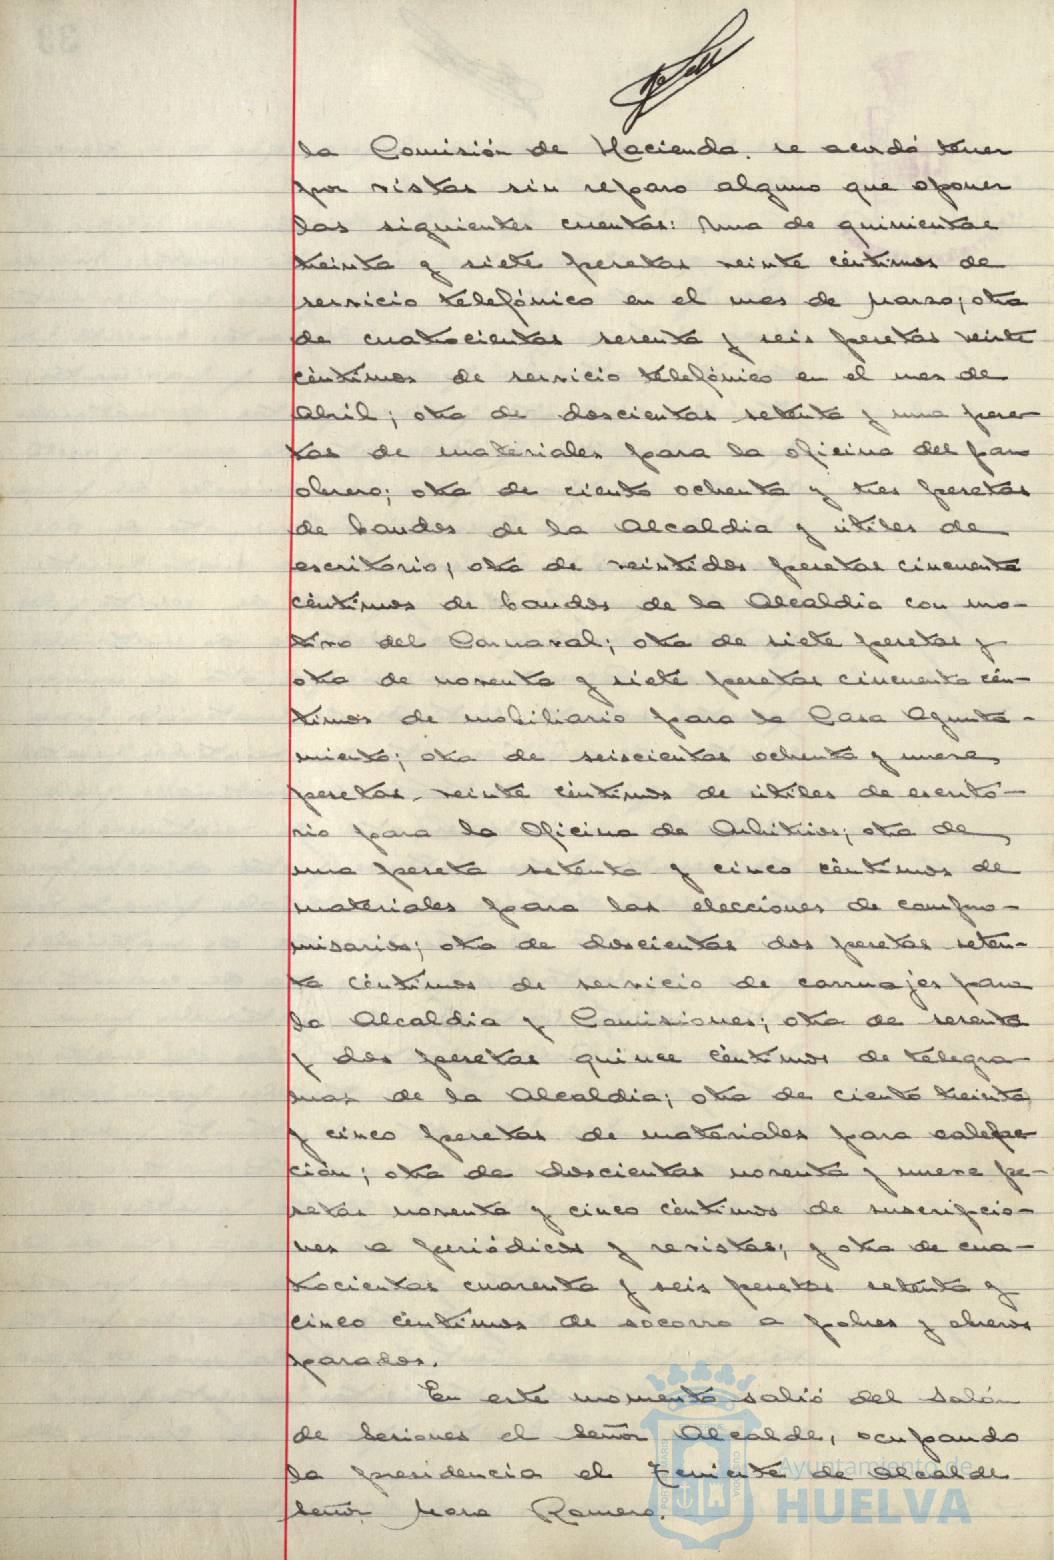 la Comisión de Hacienda. se acordó tener
por vistas sin reparo alguno que oponer
las siguientes cuentas: Una de quinientas
treinta y siete pesetas veinte céntimos de
servicio telefónico en el mes de Marzo; otra
de cuatrocientas sesenta y seis pesetas veinte
céntimos de servicio telefónico en el mes de
Abril; otra de doscientas setenta y una pese-
tas de materiales para la oficina del paro
obrero; otra de ciento ochenta y tres pesetas
de bandos de la Alcaldia y útiles de
escritorio; otra de veintidos pesetas cincuenta
céntimos de bandos de la Alcaldia con mo-
tivo del Carnaval; otra de siete pesetas y
otra de noventa y siete pesetas cincuenta cén-
timos de mobiliario para la Casa Ayunta-
miento; otra de seiscientas ochenta y nueve
pesetas veinte céntimos de útiles de escrito-
rio para la Oficina de Arbitrios; otra de
una peseta setenta y cinco céntimos de
materiales para las elecciones de compro-
misarios; otra de doscientas dos pesetas seten-
ta céntimos de servicio de carruajes para
la Alcaldia y Comisiones; otra de sesenta
y dos pesetas quince céntimos de telegra
mas de la Alcaldia; otra de ciento treinta
y cinco pesetas de materiales para calefac
ción; otra de doscientas noventa y nueve pe-
setas noventa y cinco céntimos de suscripcio-
nes a periódicos y revistas; y otra de cua-
trocientas cuarenta y seis pesetas setenta y
cinco céntimos de socorro a pobres y obreros
parados.
En este momento salió del Salón
de Sesiones el Señor Alcalde, ocupando
la presidencia el Teniente de Alcalde
Señor Mora Romero.
Ayuntamiento de
HUELVA